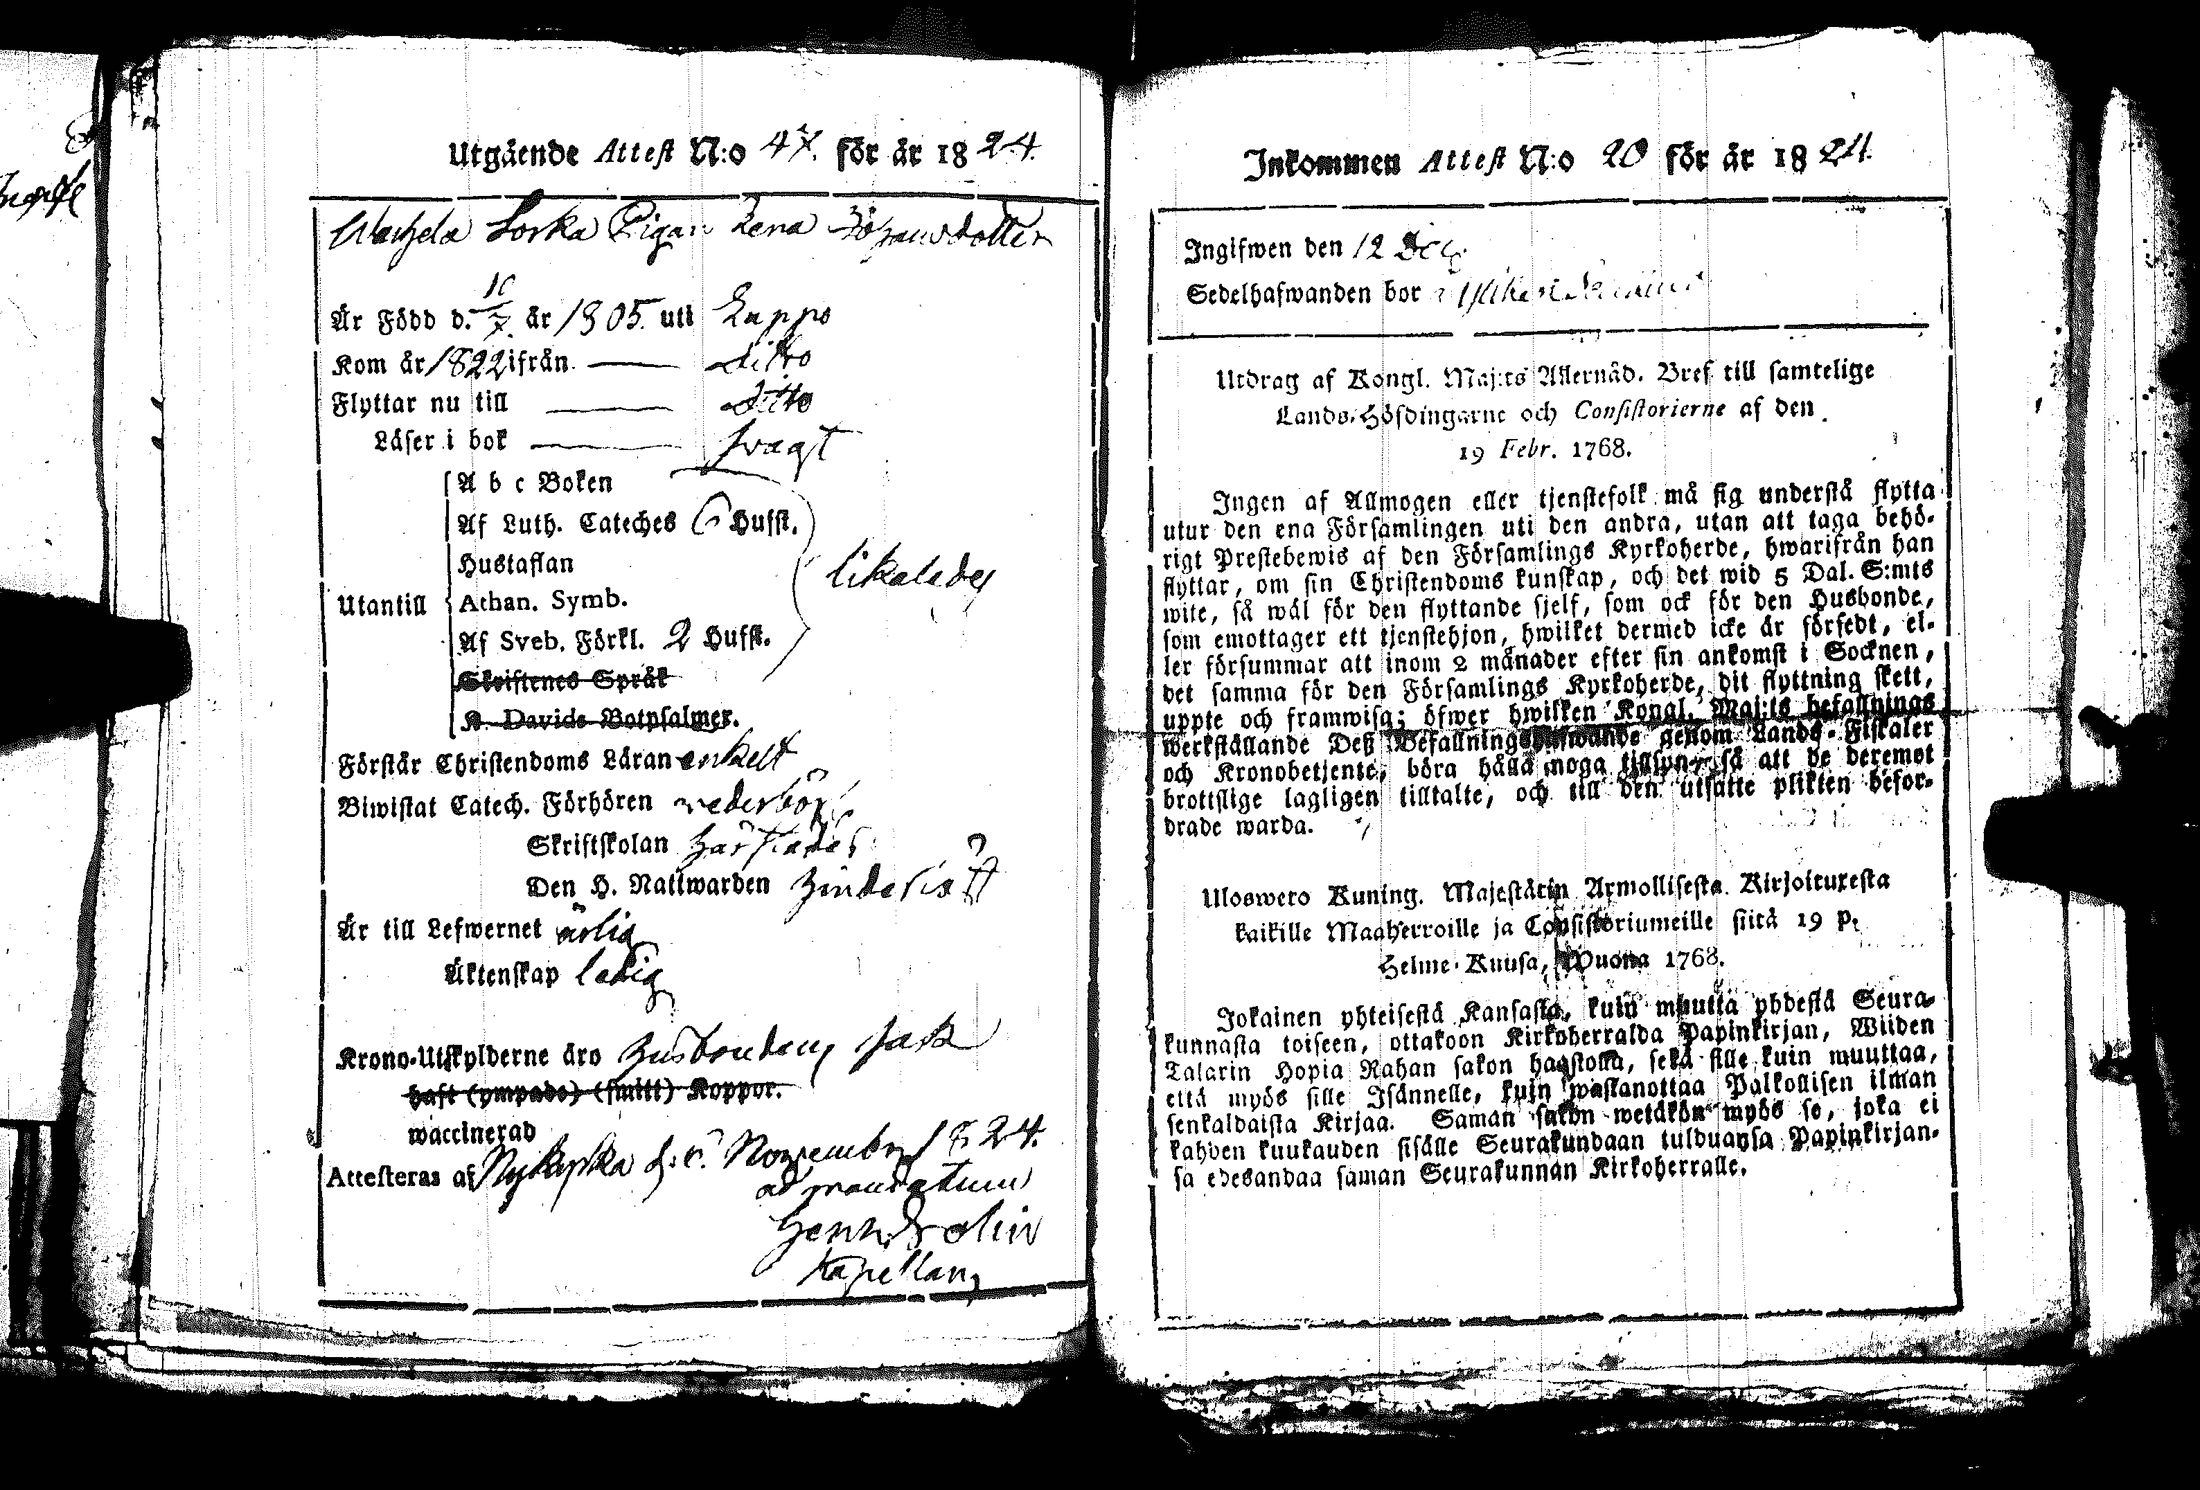 Utgående Attest N:o 47. för år 1824.
Lorka Pigan Lena Johansdotter
Är Född d. 10/7. år 1805. uti Lappo
Kom år 1822 ifrån ditto
Flyttar nu till ditto
Läser i bok svagt
A b c Boken
Af Luth. Cateches 6 Hufst.
Hustaflan
Utantill Athan. Symb. likaledes
Af Sveb. Förkl. 2 Hufst.
Skriftenes Språk
K. Davids Botpsalmer.
Förstår Christendoms Läran enkelt
Biwistat Catech. Förhören wederbörl
Skriftskolan härstädes
Den H. Nattwarden hinderslöst
Är till Lefwernet ärlig
Äktenskap ledig
Krono-Utskylderne äro husbondens sak
haft (ympade) (smitt) Koppor.
waccinerad
Attesteras af Nykyrka d. November 1824.
ad mandatum
Henr. Rolin
Kapellan
Inkommen Attest N:o 20 för år 1824.
Ingifwen den 12 Dec
Sedelhafwanden bor
Utdrag af Kongl. Maj:ts Allernåd. Bref till samtelige
Lands-Höfdingarne och Consistorierne af den
19 Febr. 1768.
Ingen af Allmogen eller tjenstefolk må sig understå flytta
utur den ena Församlingen uti den andra, utan att taga behö-
rigt Prestebewis af den Församlings Kyrkoherde, hwarifrån han
flyttar, om sin Christendoms kunskap, och det wid 5 Dal. S:mts
wite, så wäl för den flyttande sjelf, som ock för den Husbonde,
som emottager ett tjenstehjon, hwilket dermed icke är försedt, el-
ler försummar att inom 2 månader efter sin ankomst i Socknen,
det samma för den Församlings Kyrkoherde, dit flyttning skett,
uppte och framwisa; öfwer hwilken Kongl. Maj:ts befallnings
werkställande Deß Befallningshafwande genom Lands-Fiskaler
och Kronobetjente, böra hålla noga tillsyn, så att de deremot
brottslige lagligen tilltalte, och till den utsatte plikten befor-
drade warda.
Uloswero Kuning. Majestätin Armollisesta Kirjoituxesta
kaikille Maaherroille ja Consistoriumeille siitä 19 p.
Helme-Kuusa, Wuona 1768.
Jokainen yhteisestä Kansasta, kuin muutta yhdestä Seura-
kunnasta toiseen, ottakoon Kirkoherralda Papinkirjan, Wiiden
Talarin Hopia Rahan sakon haastolla, sekä sille kuin muuttaa,
että myös sille Isännelle, kuin wastanottaa Palkollisen ilman
senkaldaista Kirjaa. Saman sakon wetäkön myös se, joka ei
kahden kuukauden sisälle Seurakundaan tulduansa Papinkirjan-
sa edesandaa saman Seurakunnan Kirkoherralle.